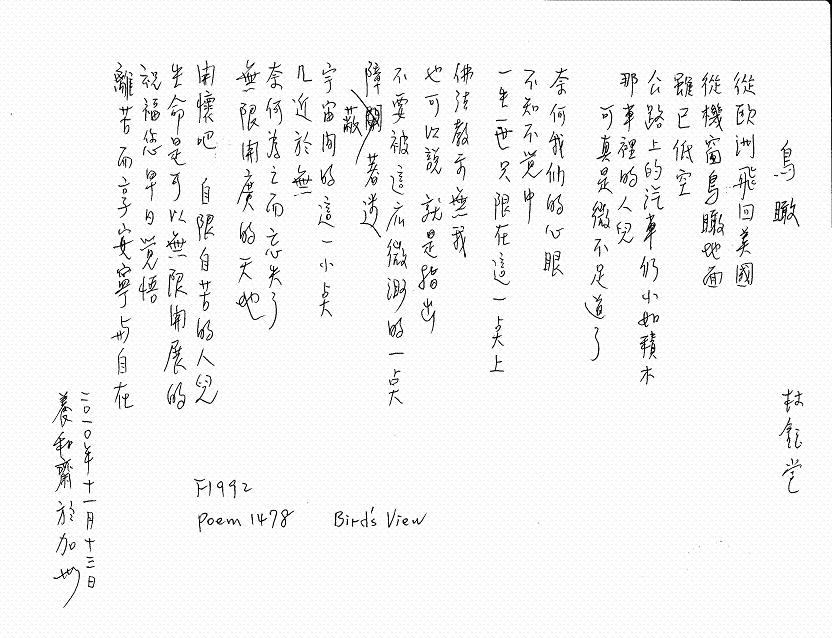 鳥瞰
林鈺堂
從歐洲飛回美國
從機窗鳥瞰地面
雖已低空
公路上的汽車仍小如積木
那車裡的人兒
可真是微不足道了
奈何我們的心眼
不知不覺中
一生一世只限在這一奌上
佛法教示無我
也可以說 就是指出
不要被這麼微渺的一奌
障蔽著迷
宇宙間的這一小奌
几近於無
奈何為之而忘失了
無限開廣的天地
開懷吧 自限自苦的人兒
生命是可以無限開展的
祝福您早日覺悟
離苦而享安寧与自在
二〇一〇年十一月十三日
養和齋 於加州
F1992
Poem 1478 Bird's View